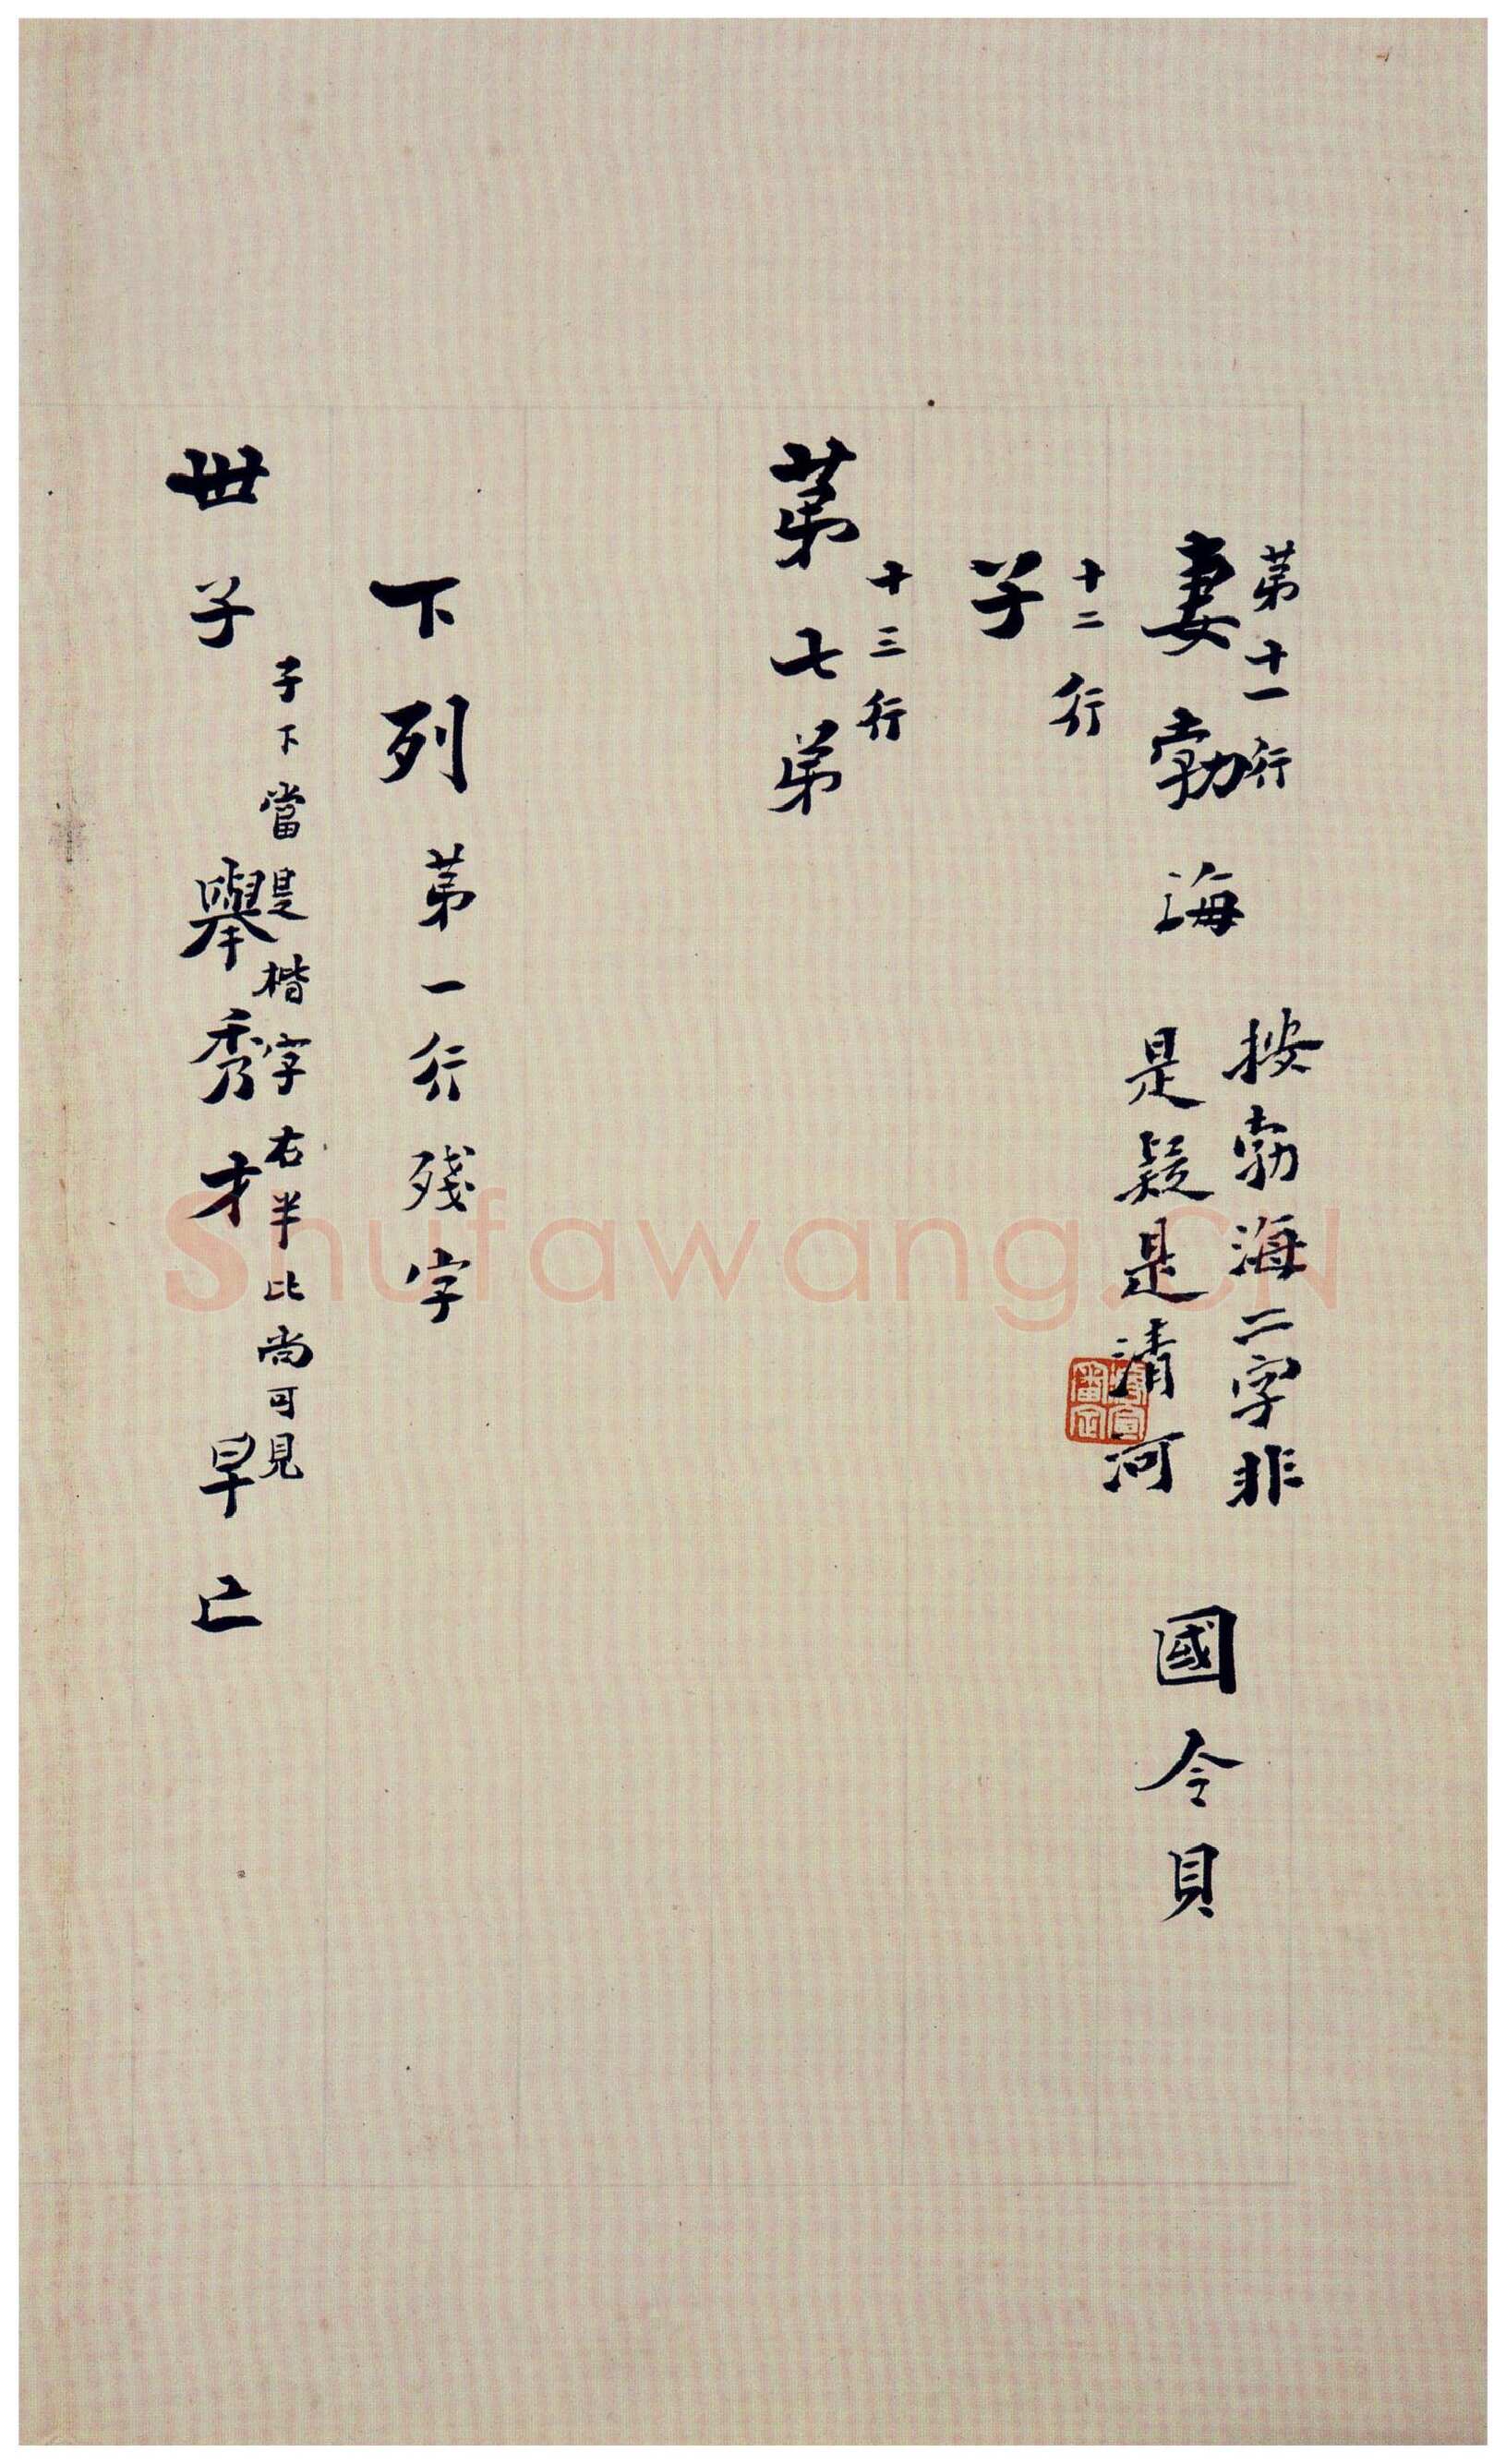 第十一行
妻勃海
按勃海二字非
是疑是清河
國令貝
十二行
子
十三行
第七弟
下列第一行殘字
世子
子下當是楷字右半比尚可見
舉秀才
早亡
Shufawang.CN